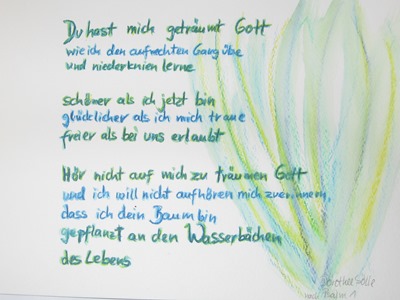 Du hast mich geträumt Gott
wie ich den aufrechten Gang übe
und niederknien lerne
schöner als ich jetzt bin
glücklicher als ich mich traue
freier als bei uns erlaubt
Hör nicht auf mich zu träumen Gott
und ich will nicht aufhören mich zu erinnern,
dass ich dein Baum bin
gepflanzt an den Wasserbächen
des Lebens
Dorothee Sölle
nach Psalm 1